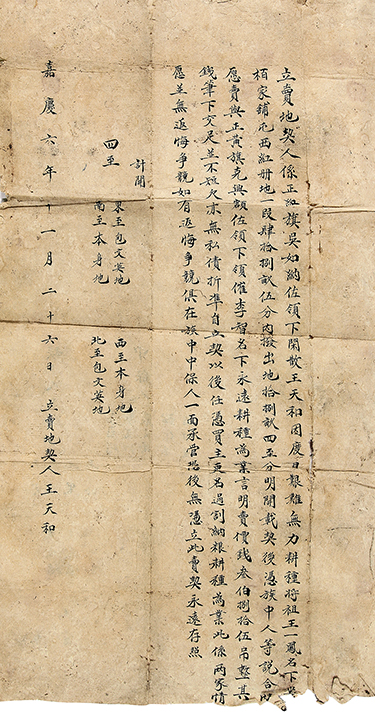 立賣地契人係正紅旗吳如納佐領下閑散王天和因度日艱難無力耕種將祖王一鳳名下
栢家舖屯西紅冊地一段肆拾捌畝伍分內撥出地拾捌畝四至分明開載契後憑族中人等説合
愿賣與正黃旗克興額佐領下領催李智名下永遠耕種為業言明賣價錢叁伯捌拾伍吊整其
錢筆下交足並不短欠亦無私債折準自立契以後任憑買主更名過割納粮耕種為業此係兩家情
愿並無返悔爭競如有返悔爭競俱在族中中保人一面承管恐後無憑立此賣契永遠存照
計開
四至
東至包文英地
南至本身地
西至本身地
北至包文英地
嘉慶六年十一月二十六日 立賣地契人王天和